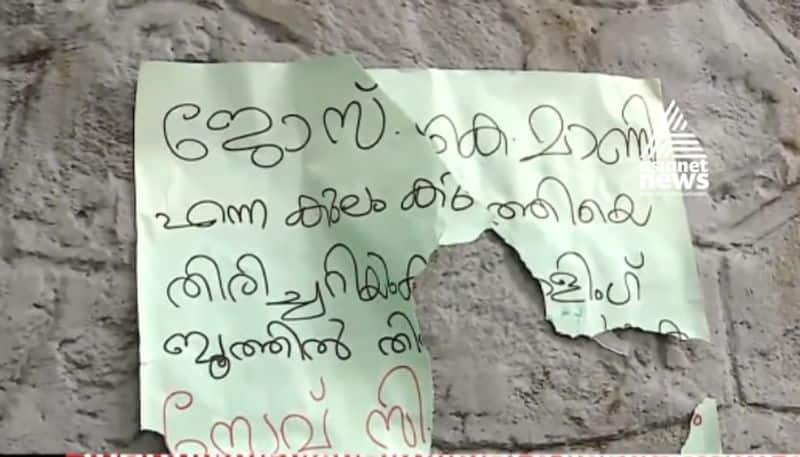 ജോസ്. കെ. മാണി
എന്ന കുലം കു ത്തിയെ
തിരിച്ചറിയുക ളിംഗ്
ബൂത്തിൽ തി
സേവ് സി
asianet
news